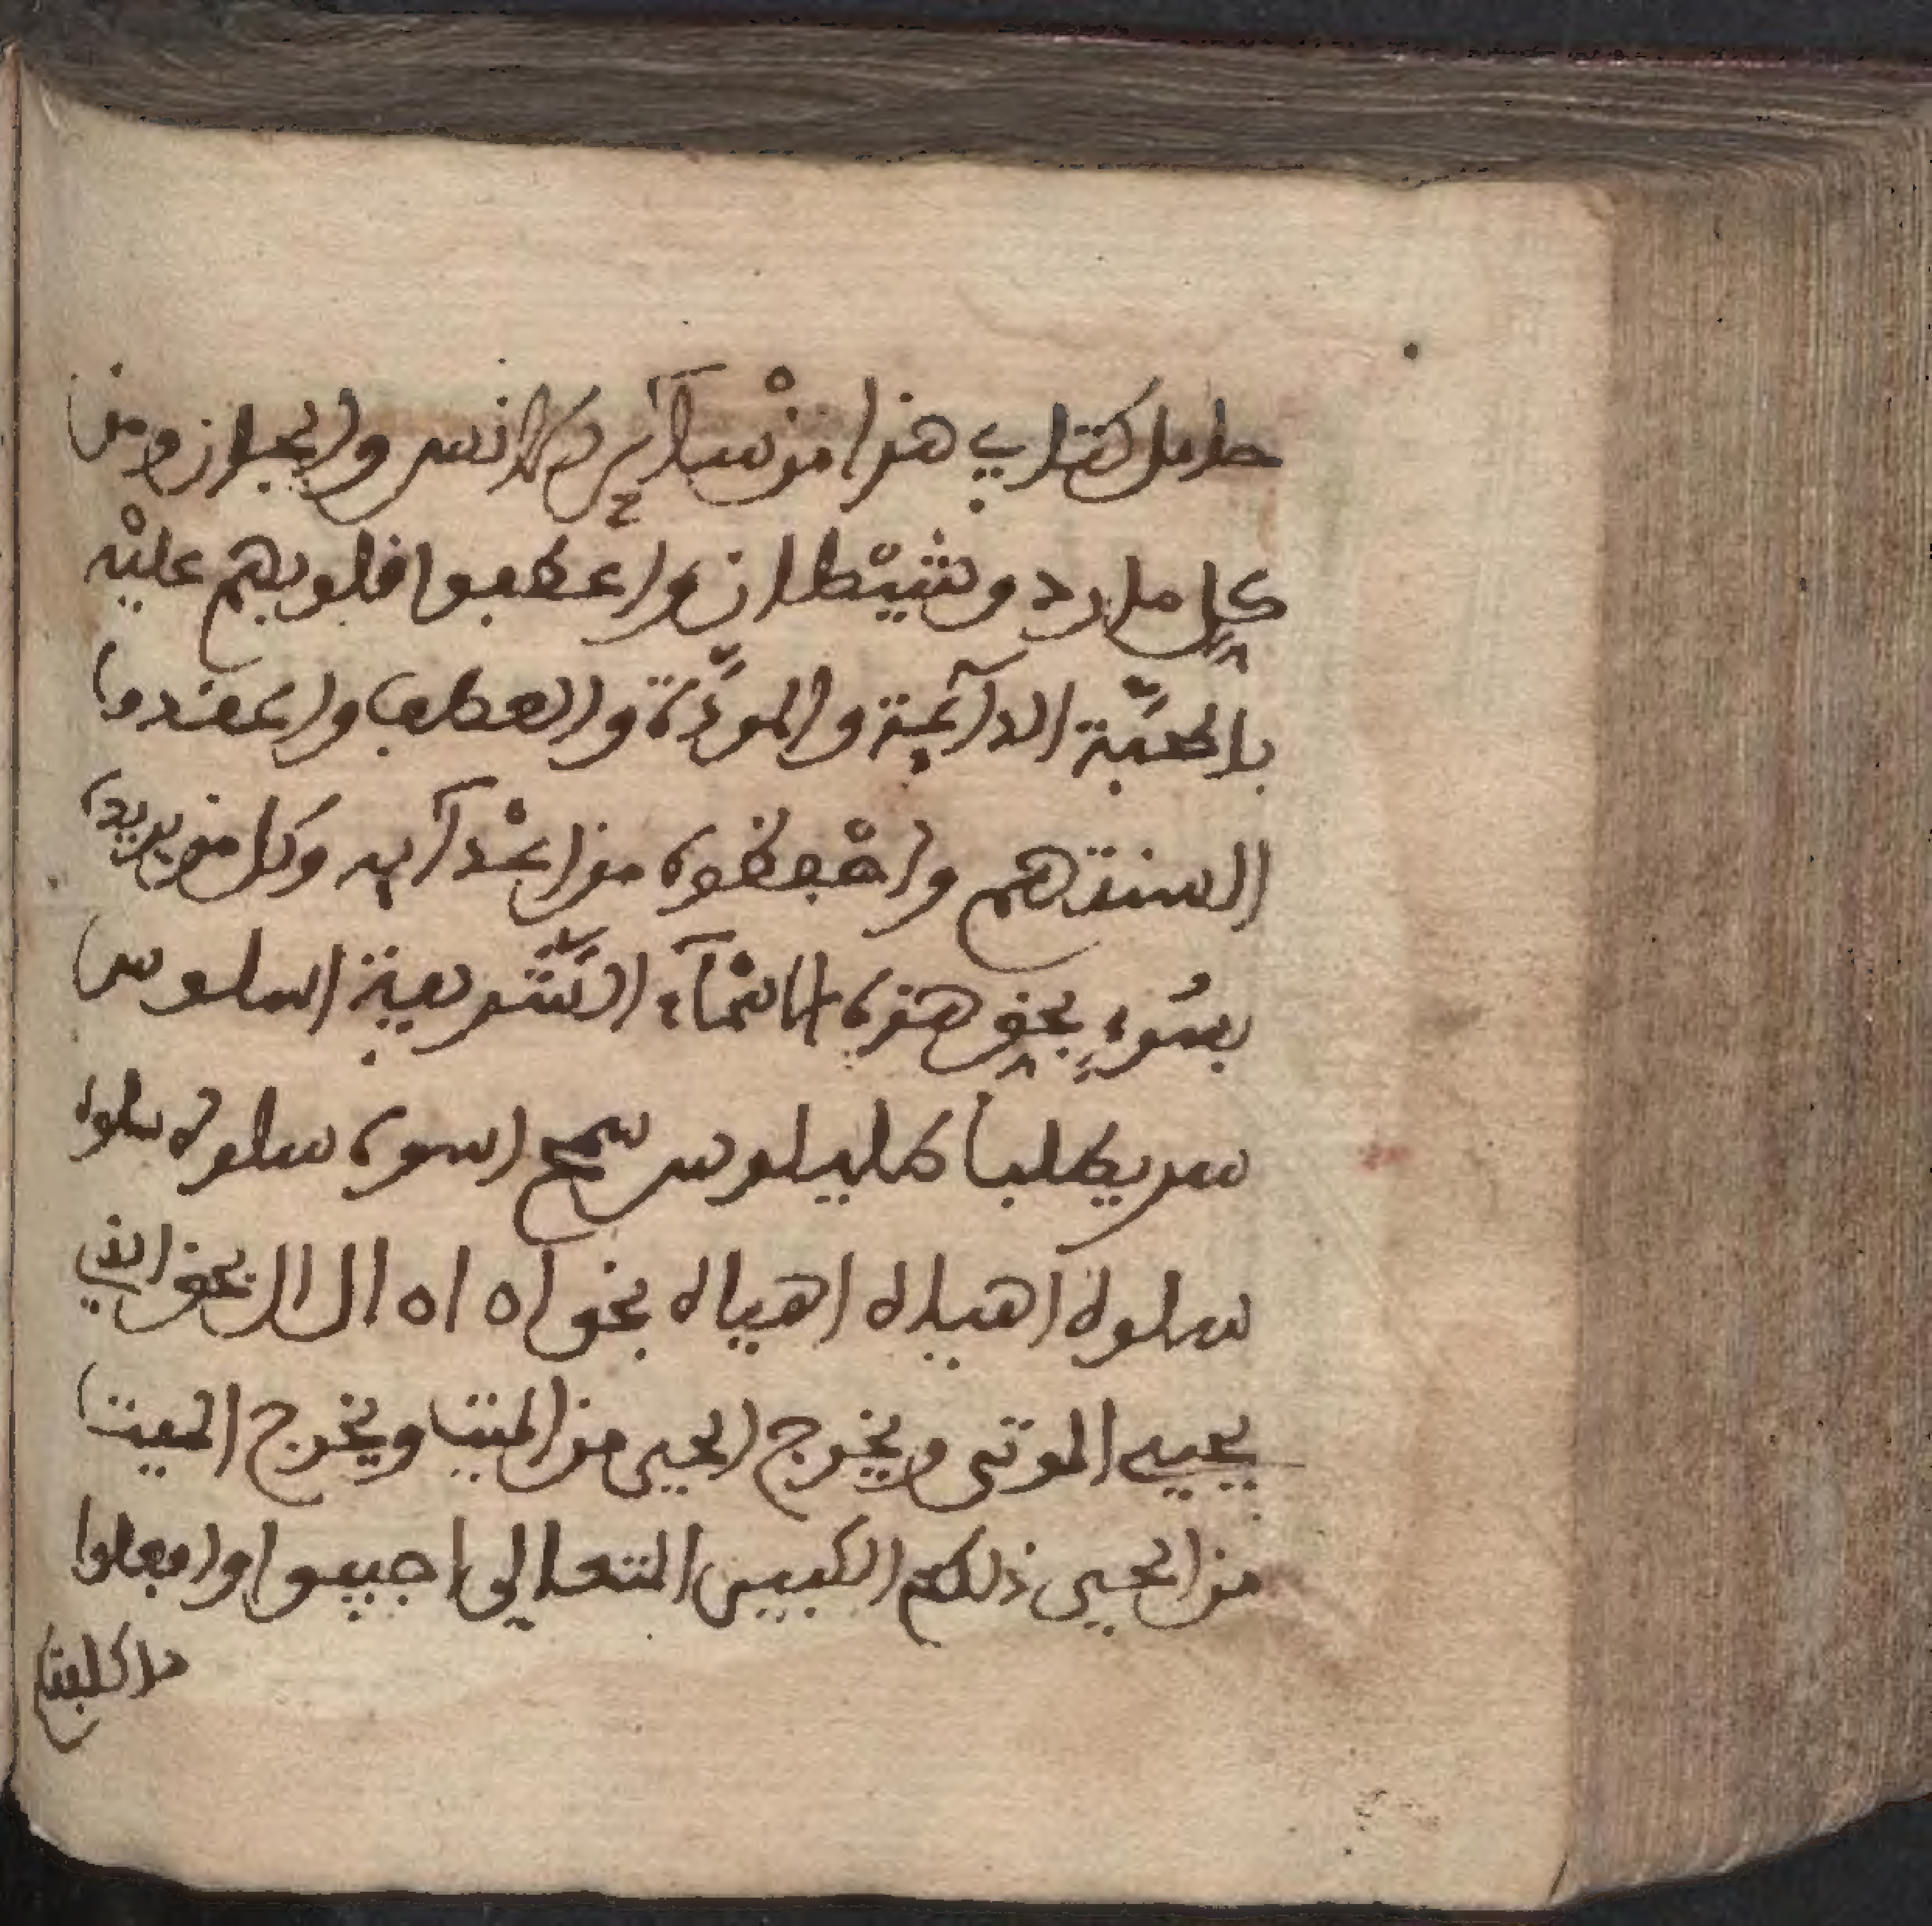 حامل كتابي هذا من سآئر الانس والجان ومن
كل مارد وشيطان واعطفوا قلوبهم عليْه
بالمحبَّة الدآئمة والمودَّة والعطف واعقدوا
السنتهم واحْفظوه من اعْدآيه وكل من يريده
بسُوءٍ بحق هذه الاسْمآء الشَّريفة اسلوس
سريكلبا كلبيلوس سمح اسوه سلوه سلوه
سلوه اهياله اهياله بحق اه اه ال ال بحق الذي
يحيي الموتى ويخرج الحيى من الميت ويخرج الميت
من الحيى ذلكم الكبير المتعالى اجيبوا وافعلوا
ما كلفتكم